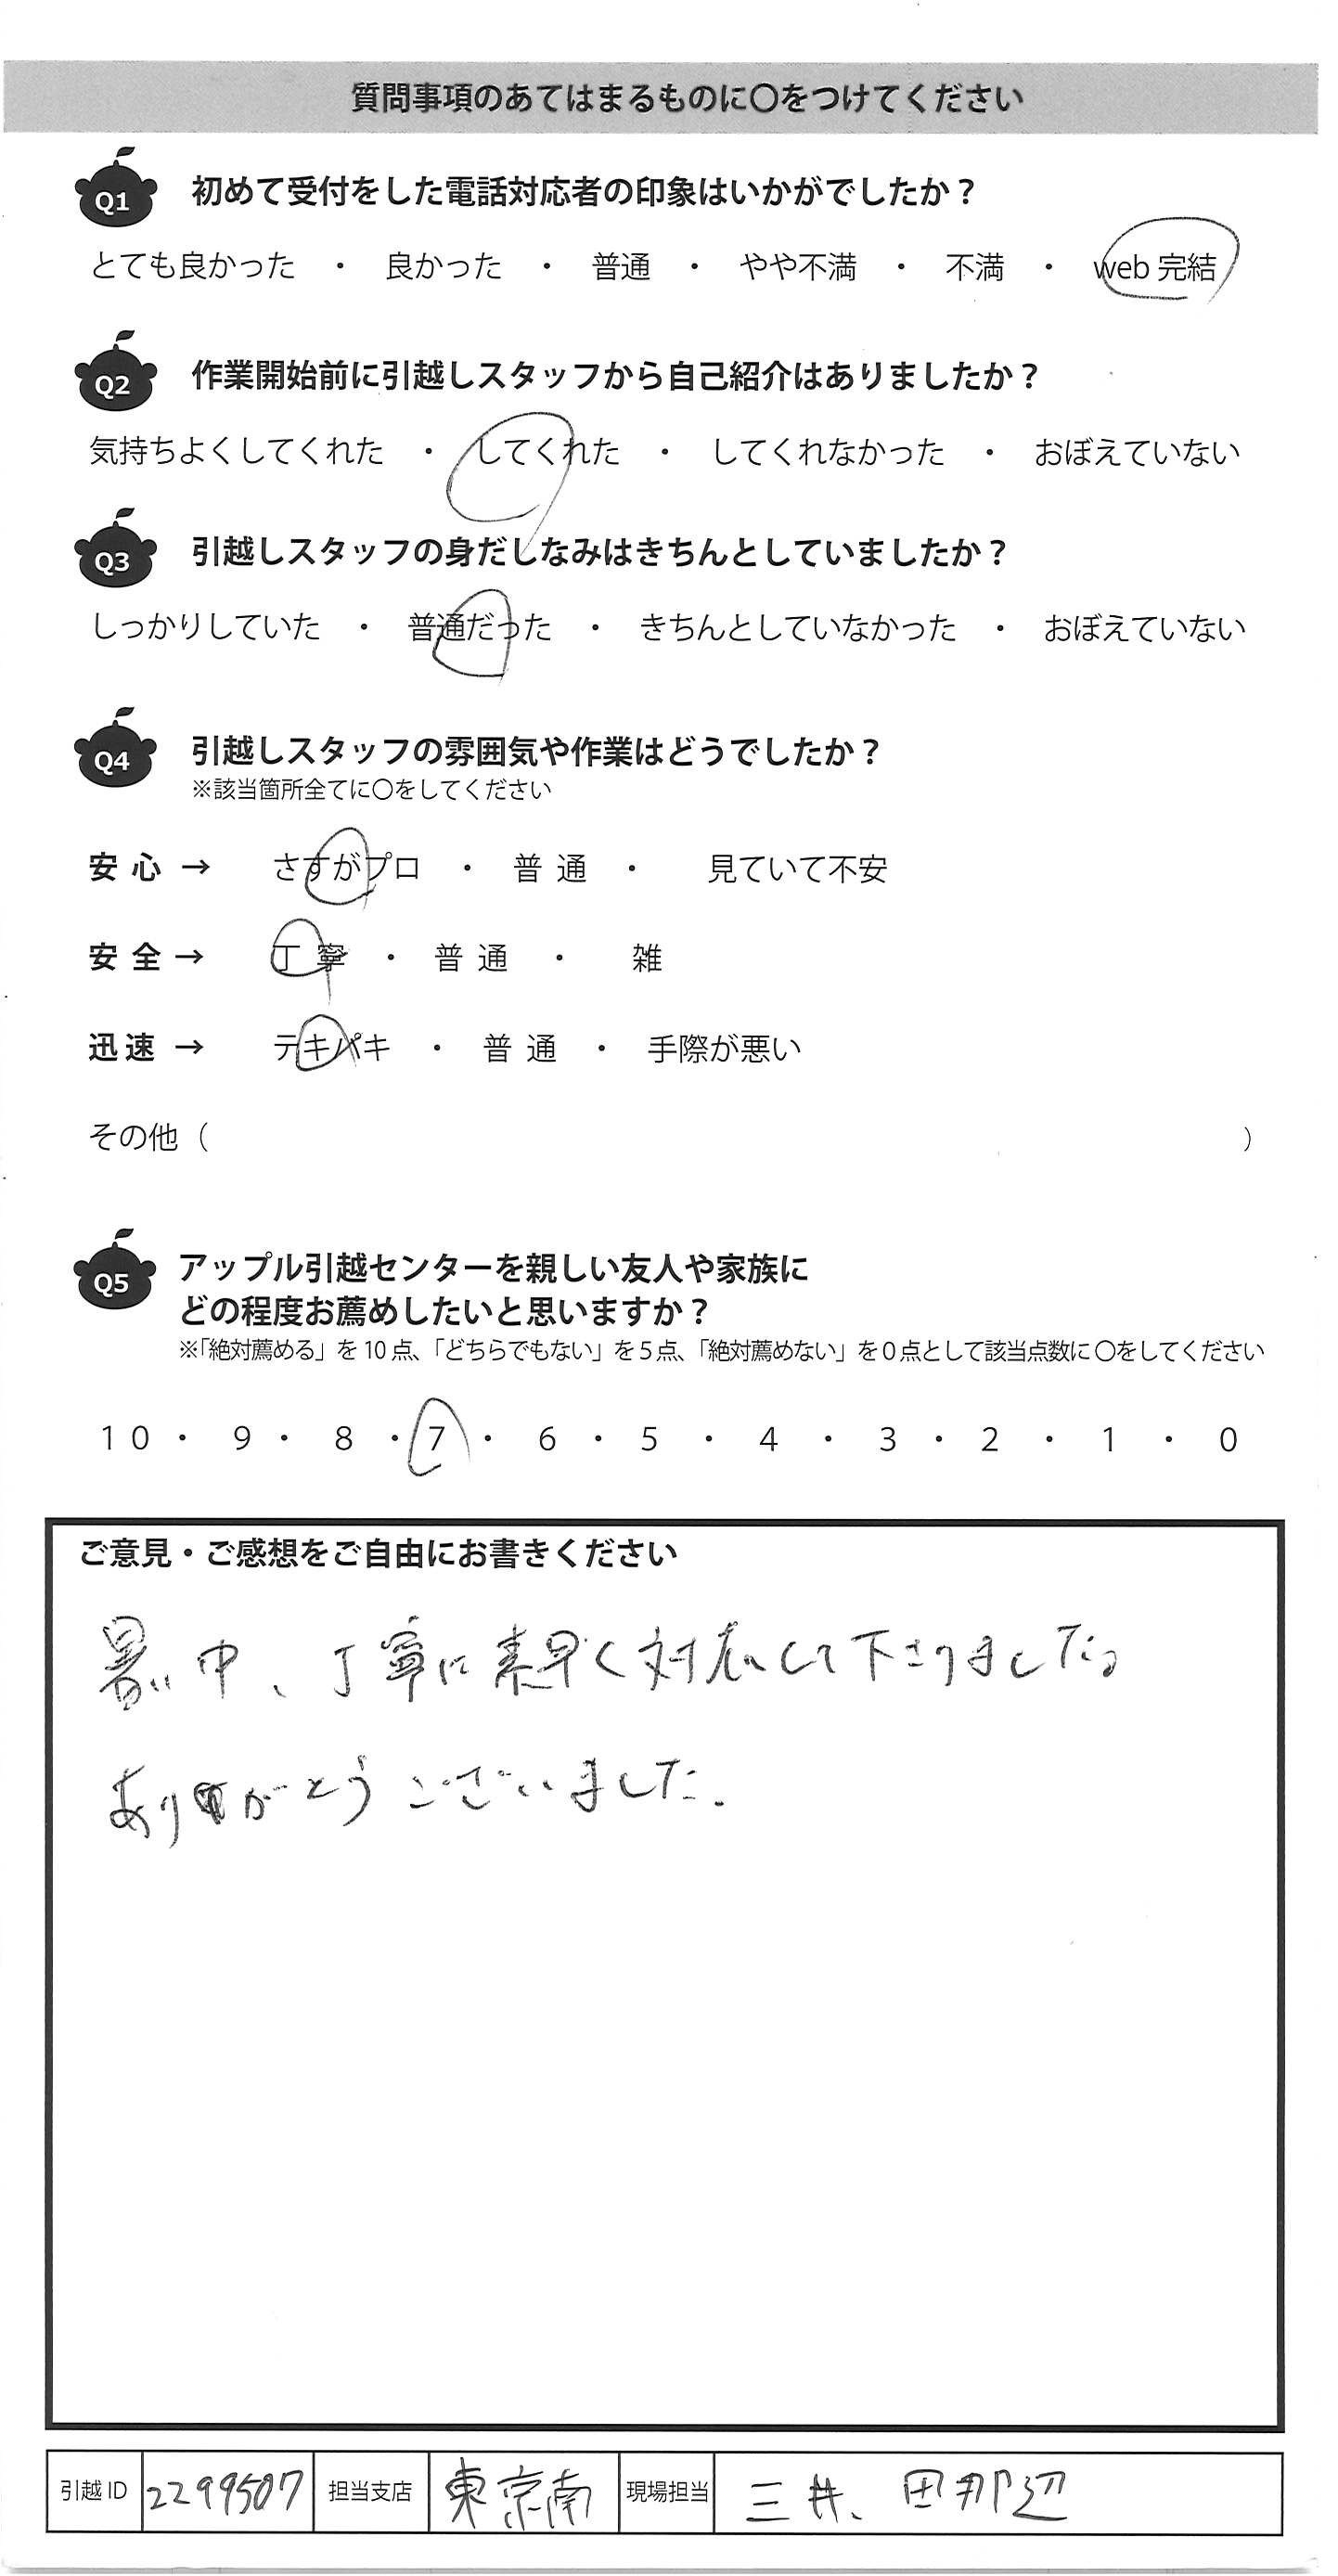 質問事項のあてはまるものに〇をつけてください
Q1 初めて受付をした電話対応者の印象はいかがでしたか？
とても良かった ・ 良かった ・ 普通 ・ やや不満 ・ 不満 ・ web 完結
Q2 作業開始前に引越しスタッフから自己紹介はありましたか？
気持ちよくしてくれた ・ してくれた ・ してくれなかった ・ おぼえていない
Q3 引越しスタッフの身だしなみはきちんとしていましたか？
しっかりしていた ・ 普通だった ・ きちんとしていなかった ・ おぼえていない
Q4 引越しスタッフの雰囲気や作業はどうでしたか？
※該当箇所全てに〇をしてください
安心 → さすがプロ ・ 普通 ・ 見ていて不安
安全 → 丁寧 ・ 普通 ・ 雑
迅速 → テキパキ ・ 普通 ・ 手際が悪い
その他（ ）
Q5 アップル引越センターを親しい友人や家族に
どの程度お薦めしたいと思いますか？
※「絶対薦める」を10点、「どちらでもない」を5点、「絶対薦めない」を0点として該当点数に〇をしてください
10 ・ 9 ・ 8 ・ 7 ・ 6 ・ 5 ・ 4 ・ 3 ・ 2 ・ 1 ・ 0
ご意見・ご感想をご自由にお書きください
暑い中、丁寧に素早く対応して下さりました。
ありがとうございました。
引越ID 2299507 担当支店 東京南 現場担当 三井、田那辺